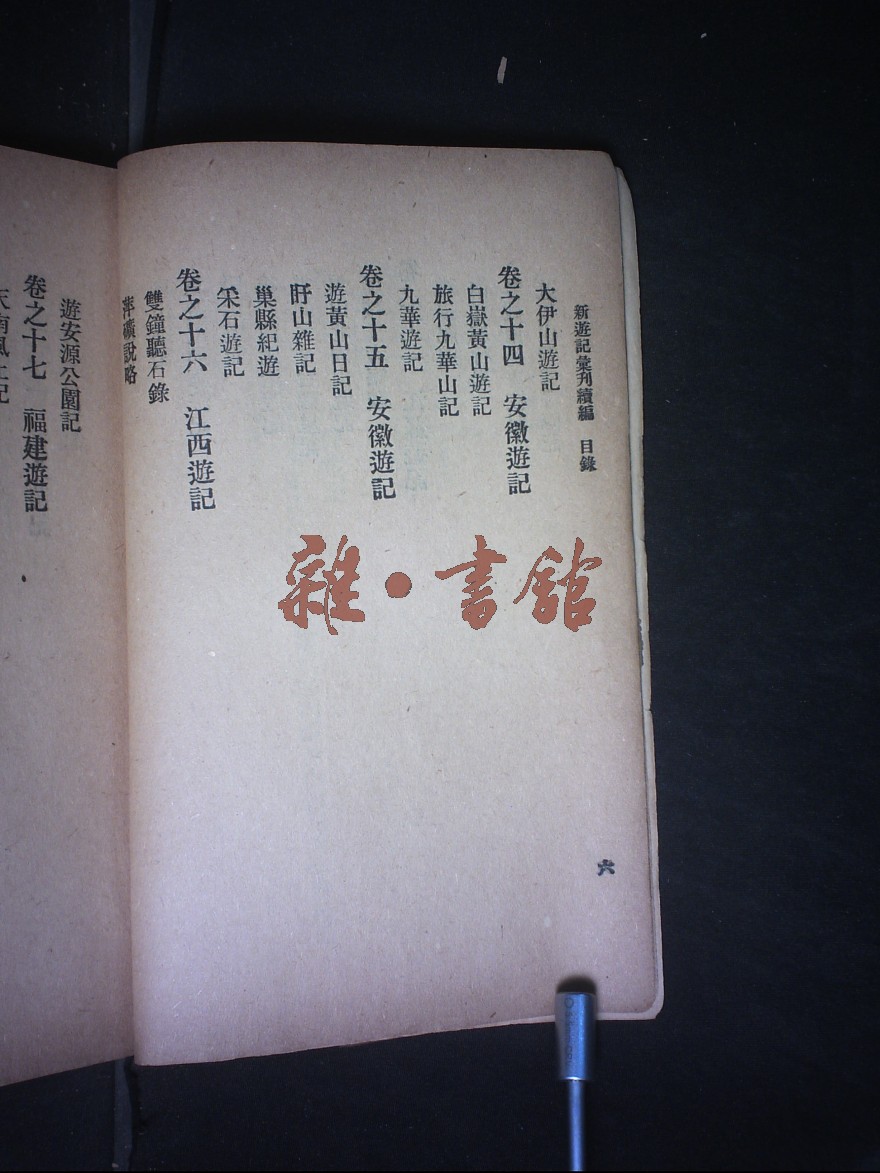 新遊記彙刊續編 目錄
大伊山遊記
卷之十四 安徽遊記
白嶽黃山遊記
旅行九華山記
九華遊記
卷之十五 安徽遊記
遊黃山日記
盱山雜記
巢縣紀遊
采石遊記
卷之十六 江西遊記
雙鐘聽石錄
萍礦說略
六
遊安源公園記
卷之十七 福建遊記
雜·書館